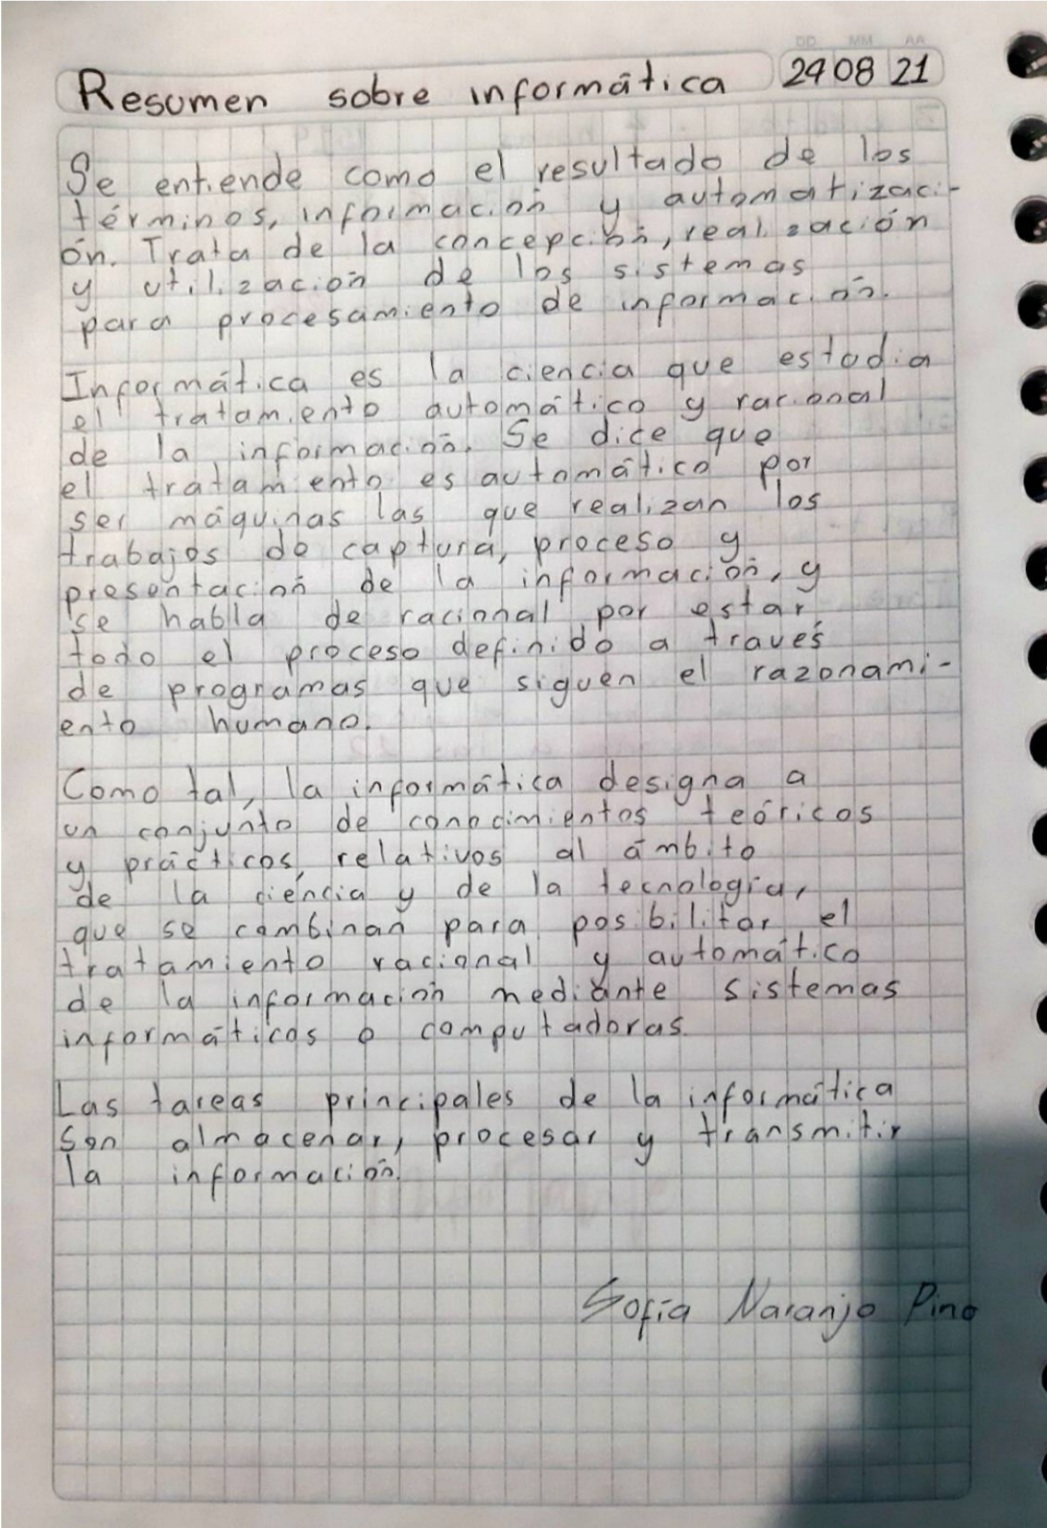 DD MM AA
Resumen sobre informática 29 08 21
Se entiende como el resultado de los
términos, información y automatizaci-
ón. Trata de la concepción, realización
y utilización de los sistemas
para procesamiento de información.
Informática es la ciencia que estudia
el tratamiento automático y racional
de la información. Se dice que
el tratamiento es automático por
ser máquinas las que realizan los
trabajos de captura, proceso y
presentación de la información, y
se habla de racional por estar
todo el proceso definido a través
de programas que siguen el razonami-
ento humano.
Como tal, la informática designa a
un conjunto de conocimientos teóricos
y prácticos, relativos al ámbito
de la ciencia y de la tecnología,
que se combinan para posibilitar el
tratamiento racional y automático
de la información mediante sistemas
informáticos o computadoras.
Las tareas principales de la informática
son almacenar, procesar y transmitir
la información.
Sofía Naranjo Pino